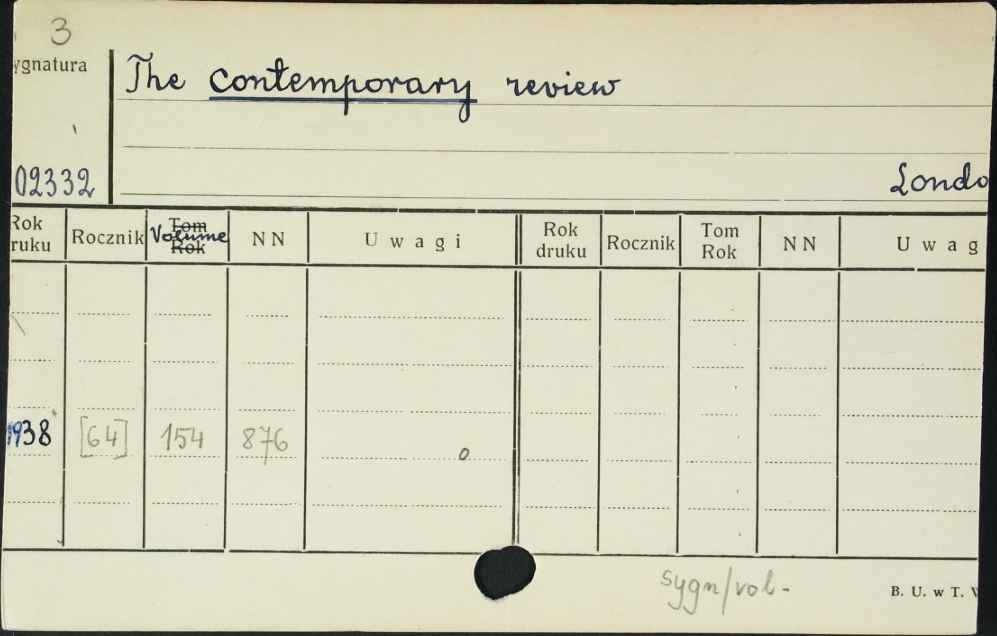 3
ygnatura
The contemporary review
02332
Londo
Rok druku Rocznik Tom Volume Rok NN Uwagi Rok druku Rocznik Tom Rok NN Uwag
1938 [64] 154 876
sygn/vol-
B. U. w T.